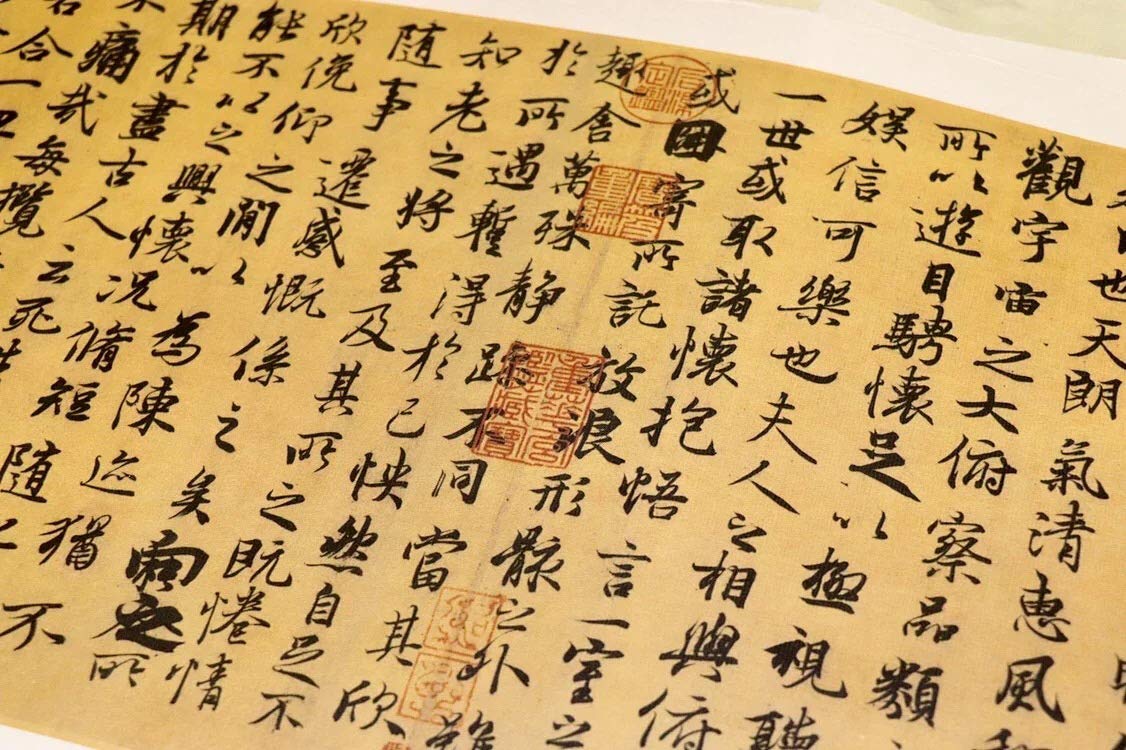 也天朗氣清惠風
觀宇宙之大俯察品類
所以遊目騁懷足以極視聽
娛信可樂也夫人之相與俯
一世或取諸懷抱悟言一室之
或因寄所託放浪形骸之外雖
趣舍萬殊静躁不同當其欣
於所遇蹔得於己怏然自足不
知老之將至及其所之既惓情
隨事遷感慨係之矣向之所
欣俛仰之閒以為陳迹猶不
能不以之興懷況脩短隨
期於盡古人云死
痛哉每攬
合一